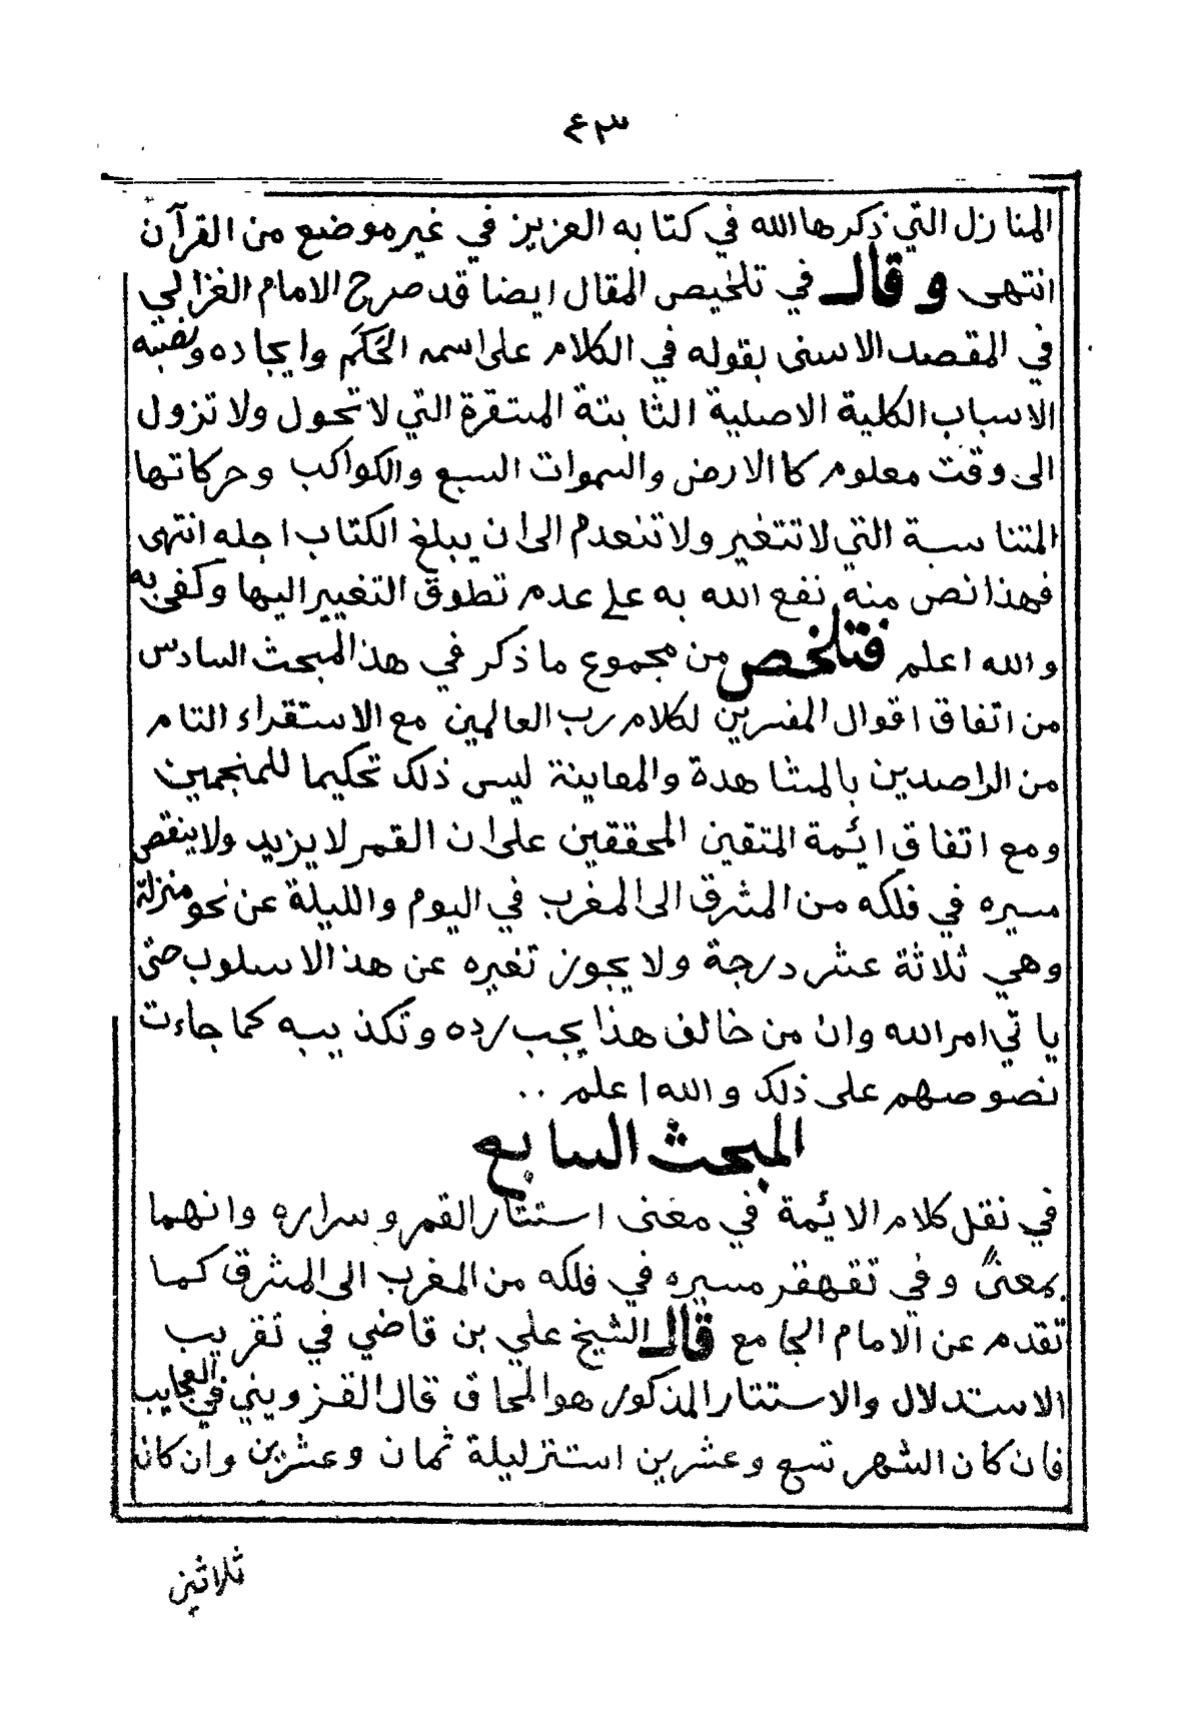 ٤٣
المنازل التي ذكرها الله في كتابه العزيز في غير موضع من القرآن
انتهى وقال في تلخيص المقال ايضا قد صرح الامام الغزالي
في المقصد الاسنى بقوله في الكلام على اسمه الحَكَم وايجاده ونصبه
الاسباب الكلية الاصلية الثابتة المستقرة التي لا تحول ولا تزول
الى وقت معلوم كالارض والسموات السبع والكواكب وحركاتها
المتناسبة التي لا تتغير ولا تنعدم الى ان يبلغ الكتاب اجله انتهى
فهذا نص منه نفع الله به على عدم تطوق التغيير اليها وكفى به
والله اعلم فتلخص من مجموع ما ذكر في هذا المبحث السادس
من اتفاق اقوال المفسرين لكلام رب العالمين مع الاستقراء التام
من الراصدين بالمشاهدة والمعاينة ليس ذلك تحكيما للمنجمين
ومع اتفاق ائمة المتقين المحققين على ان القمر لا يزيد ولا ينقص
مسيره في فلكه من المشرق الى المغرب في اليوم والليلة عن نحو منزلة
وهي ثلاثة عشر درجة ولا يجوز تغيره عن هذا الاسلوب حتى
ياتي امر الله وان من خالف هذا يجب رده وتكذيبه كما جاءت
نصوصهم على ذلك والله اعلم ..
المبحث السابع
في نقل كلام الائمة في معنى استتار القمر وسراره وانهما
بمعنىً وفي تقهقر مسيره في فلكه من المغرب الى المشرق كما
تقدم عن الامام الجامع قال الشيخ علي بن قاضي في تقريب
الاستدلال والاستتار المذكور هو المحاق قال القزويني في العجايب
فان كان الشهر تسع وعشرين استتر ليلة ثمان وعشرين وان كان
ثلاثين